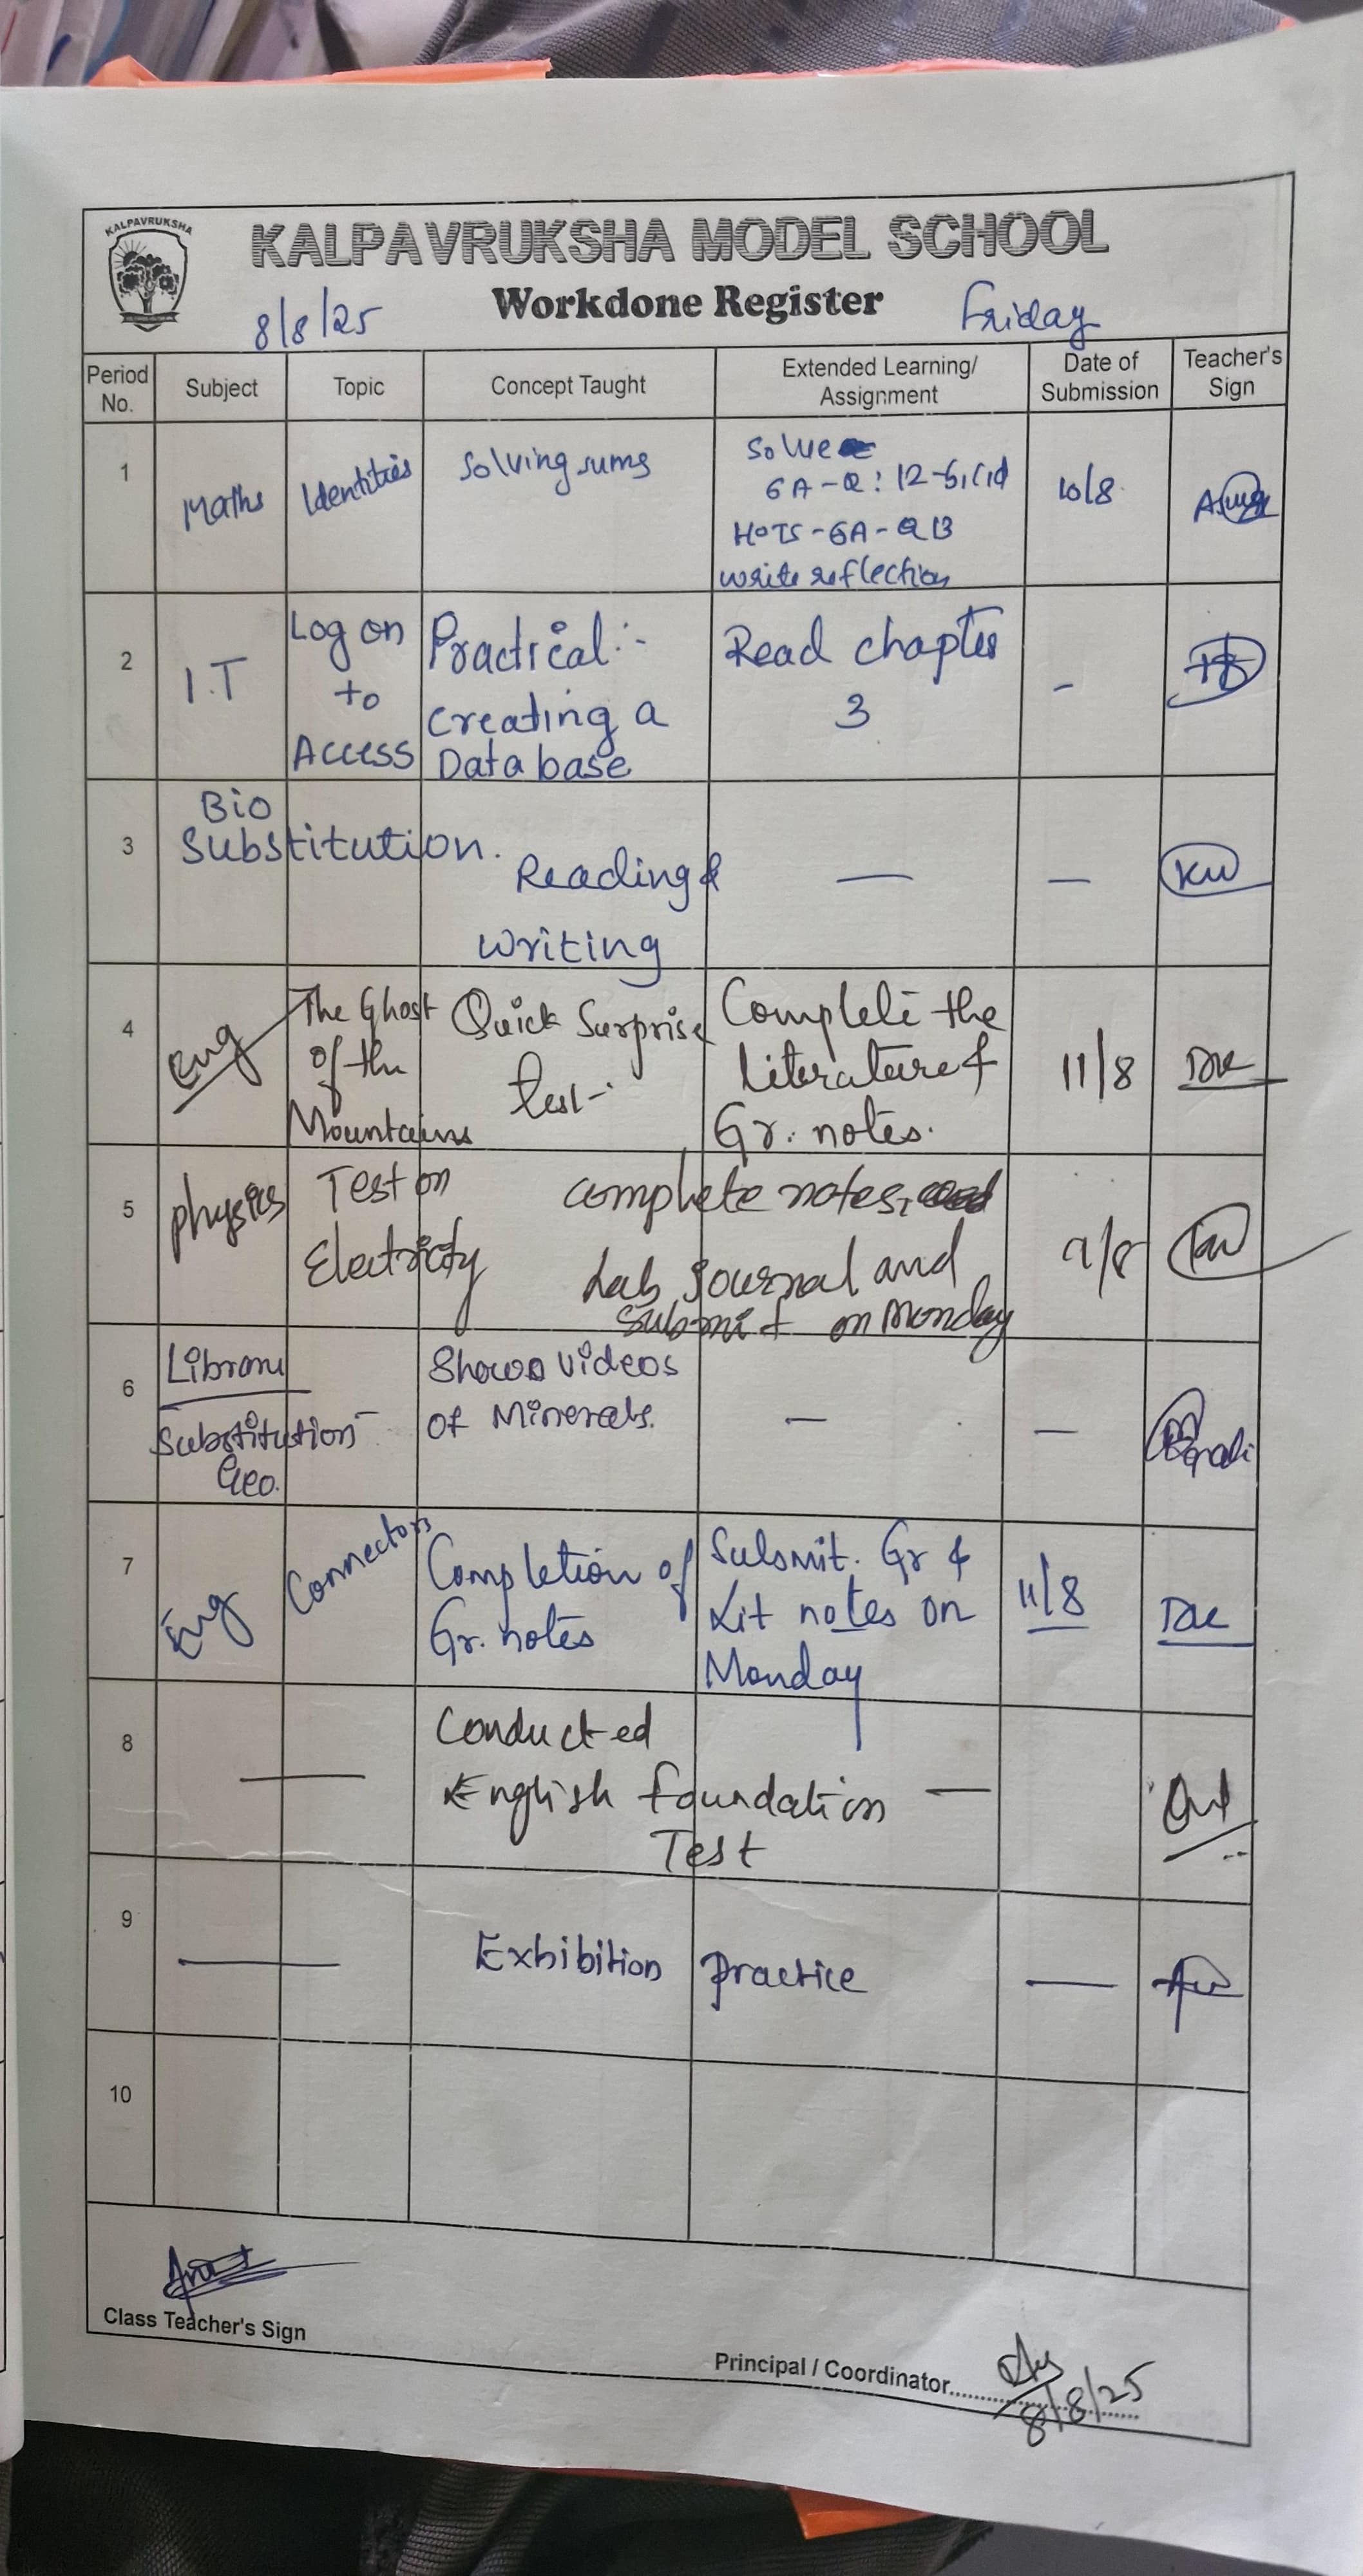 KALPAVRUKSHA
KALPAVRUKSHA MODEL SCHOOL
Workdone Register
8/8/25
Friday
Period No.
Subject
Topic
Concept Taught
Extended Learning/
Assignment
Date of
Submission
Teacher's
Sign
1
Maths
Identities
Solving sums
Solve
6A-Q: 12-b,c,d
HOTS-6A-Q13
write reflection
10/8
2
I.T
Log on
to
Access
Practical:-
Creating a
Database
Read chapter
3
-
3
Bio
Substitution.
Reading &
writing
—
—
4
Eng
The Ghost
of the
Mountains
Quick Surprise
test-
Complete the
literature &
Gr. notes.
11/8
5
physics
Test on
Electricity
complete notes,
Lab Journal and
submit on Monday
9/8
6
Library
Substitution
Geo.
Shown videos
of Minerals.
—
—
7
Eng
Connectors
Completion of
Gr. notes
Submit. Gr &
Lit notes on
Monday
11/8
8
—
Conducted
English foundation
Test
—
9
—
Exhibition Practice
—
10
Class Teacher's Sign
Principal / Coordinator
8/8/25